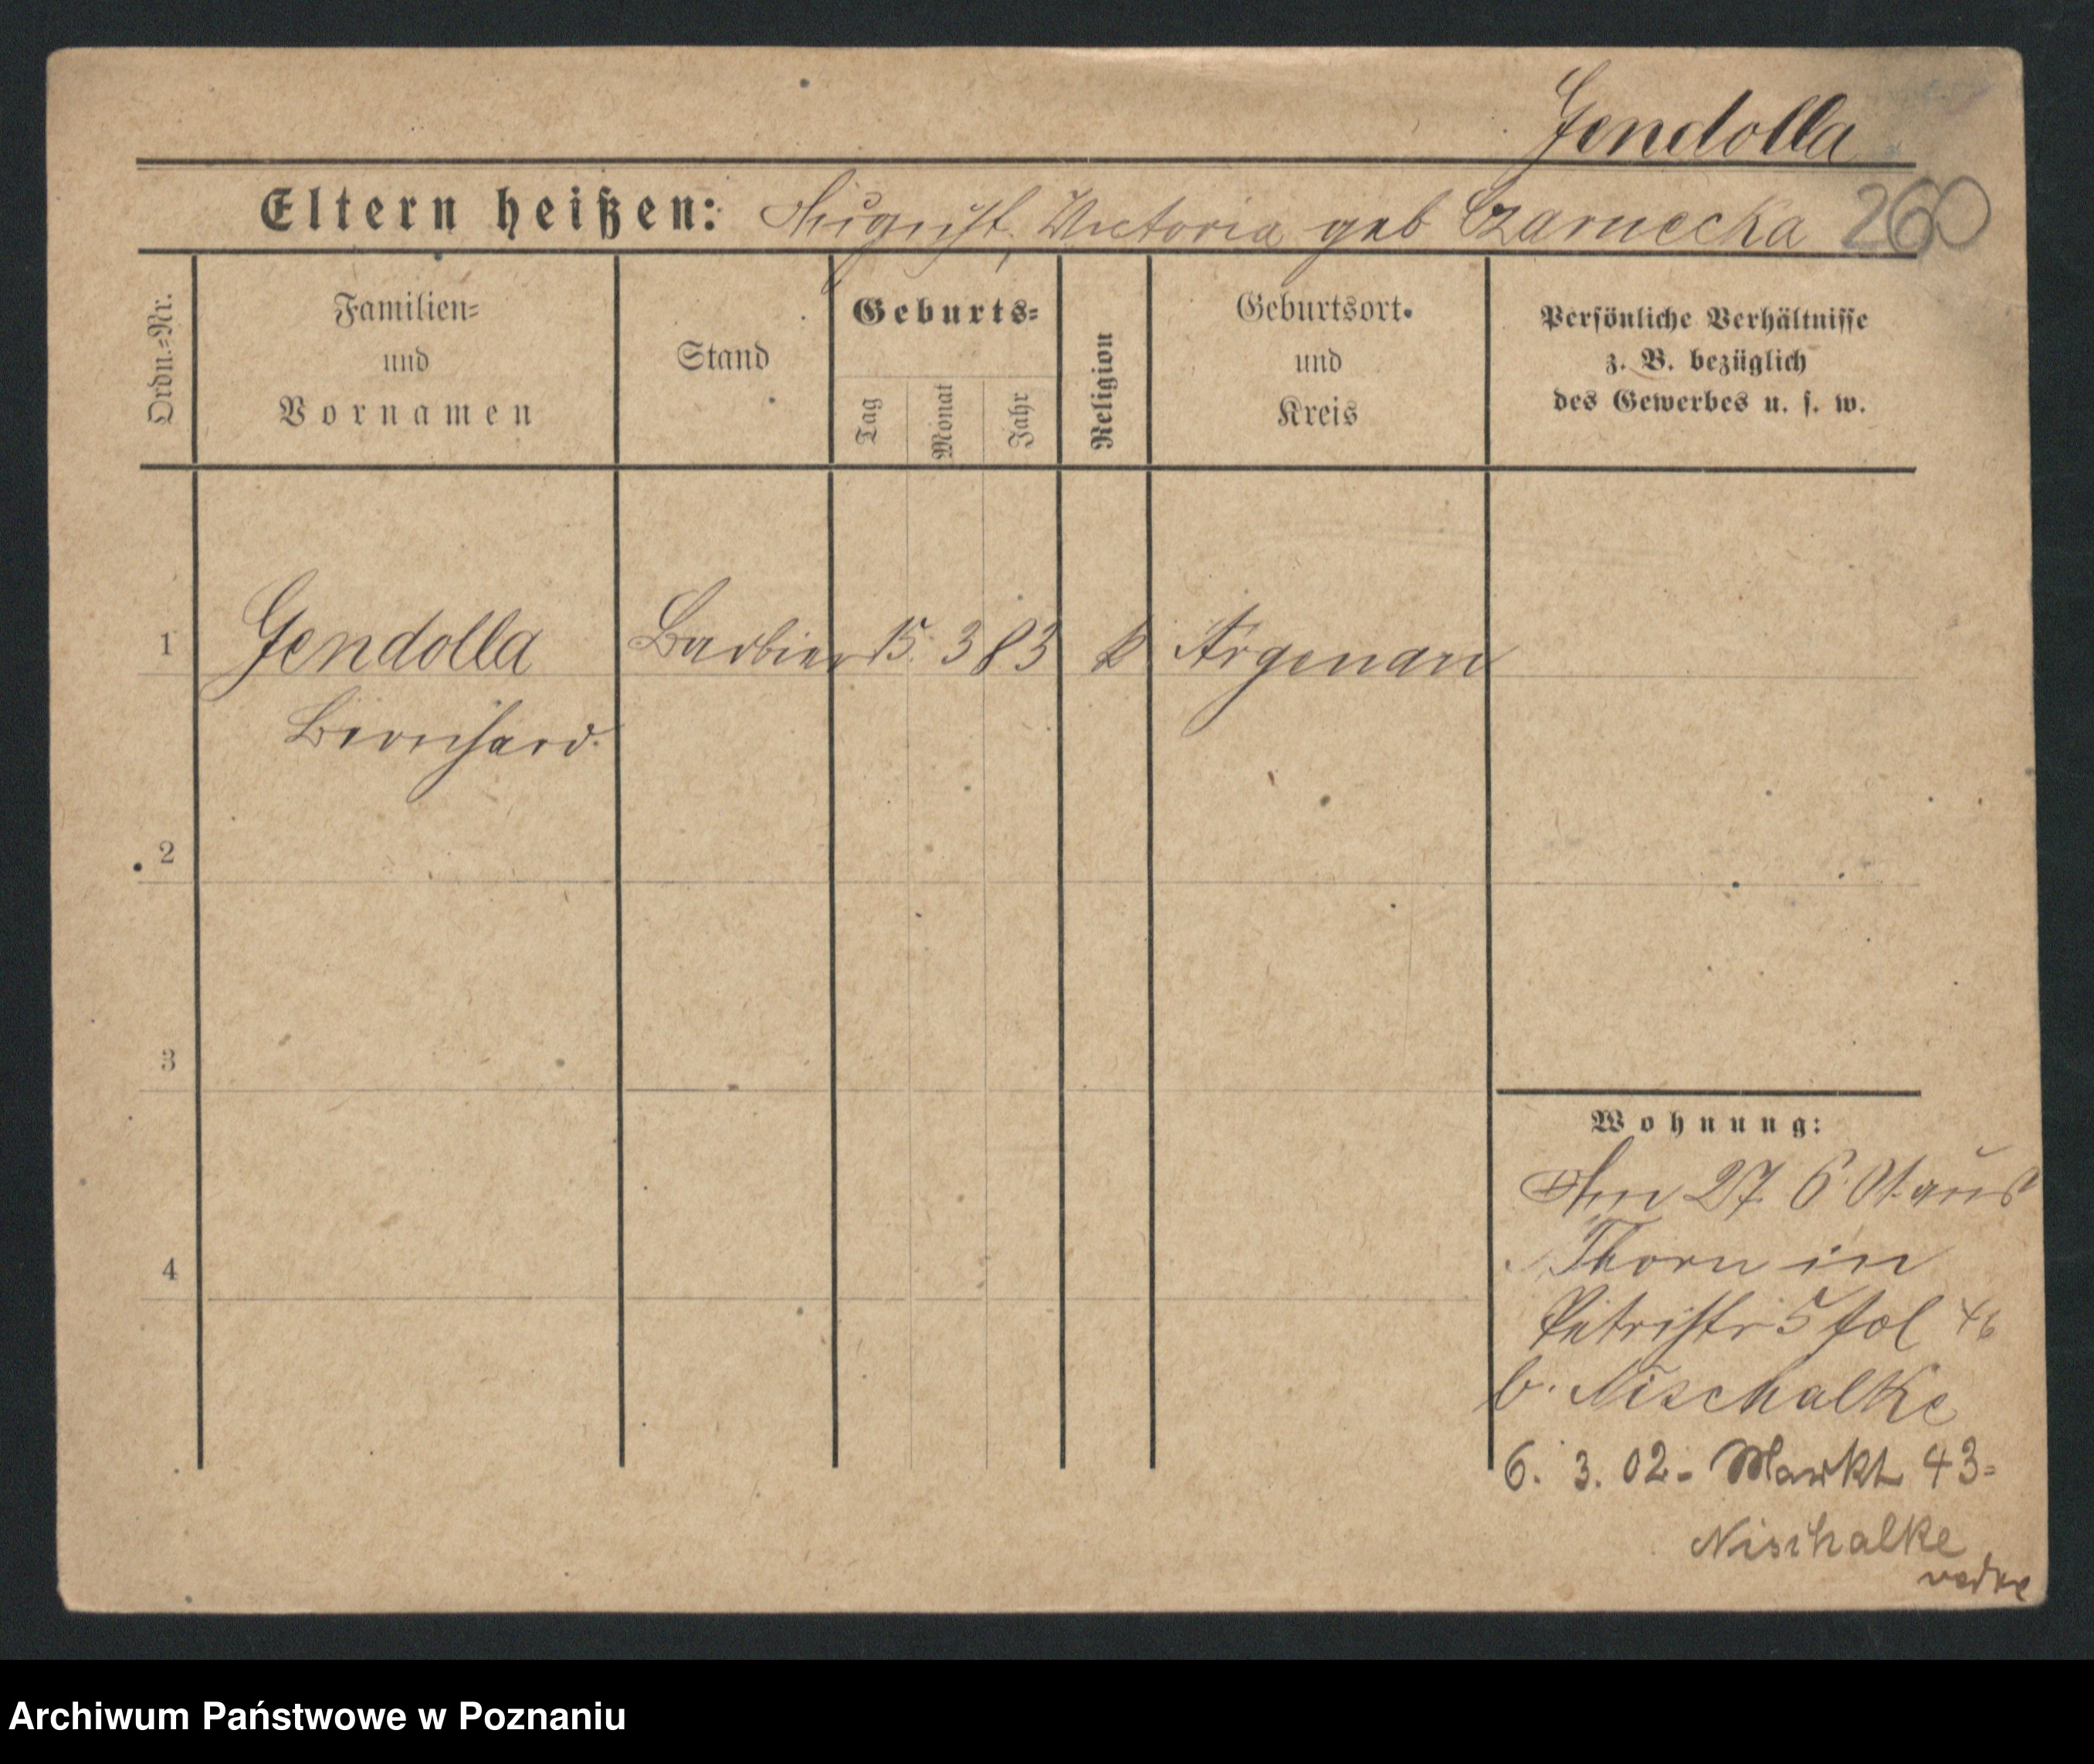 Gendolla
Eltern heißen: August, Victoria geb Czarnecka 260
Ordn.=Nr.
Familien=
und
Vornamen
Stand
Geburts=
Tag
Monat
Jahr
Religion
Geburtsort.
und
Kreis
Persönliche Verhältnisse
z. B. bezüglich
des Gewerbes u. s. w.
1 Gendolla Barbier 15. 3 83 k Argenau
Bernhard.
2
3
4
Wohnung:
Am 27. 6. 01. aus
Thorn in
Petristr 5 fol 46
b. Nischalke
6. 3. 02. Markt 43=
Nischalke
Archiwum Państwowe w Poznaniu